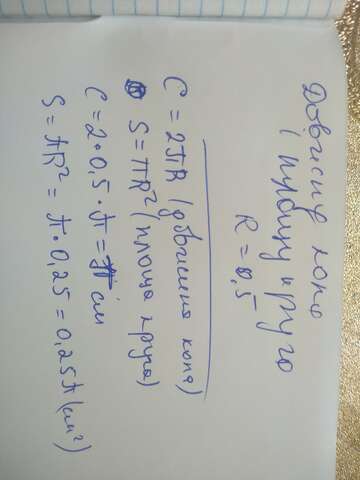 Довжину кола
(площу круга
R = 0,5
C = 2πR (довжина кола)
S = πR² (площа круга)
C = 2 • 0,5 • π = π см
S = πR² = π • 0,25 = 0,25π (см²)